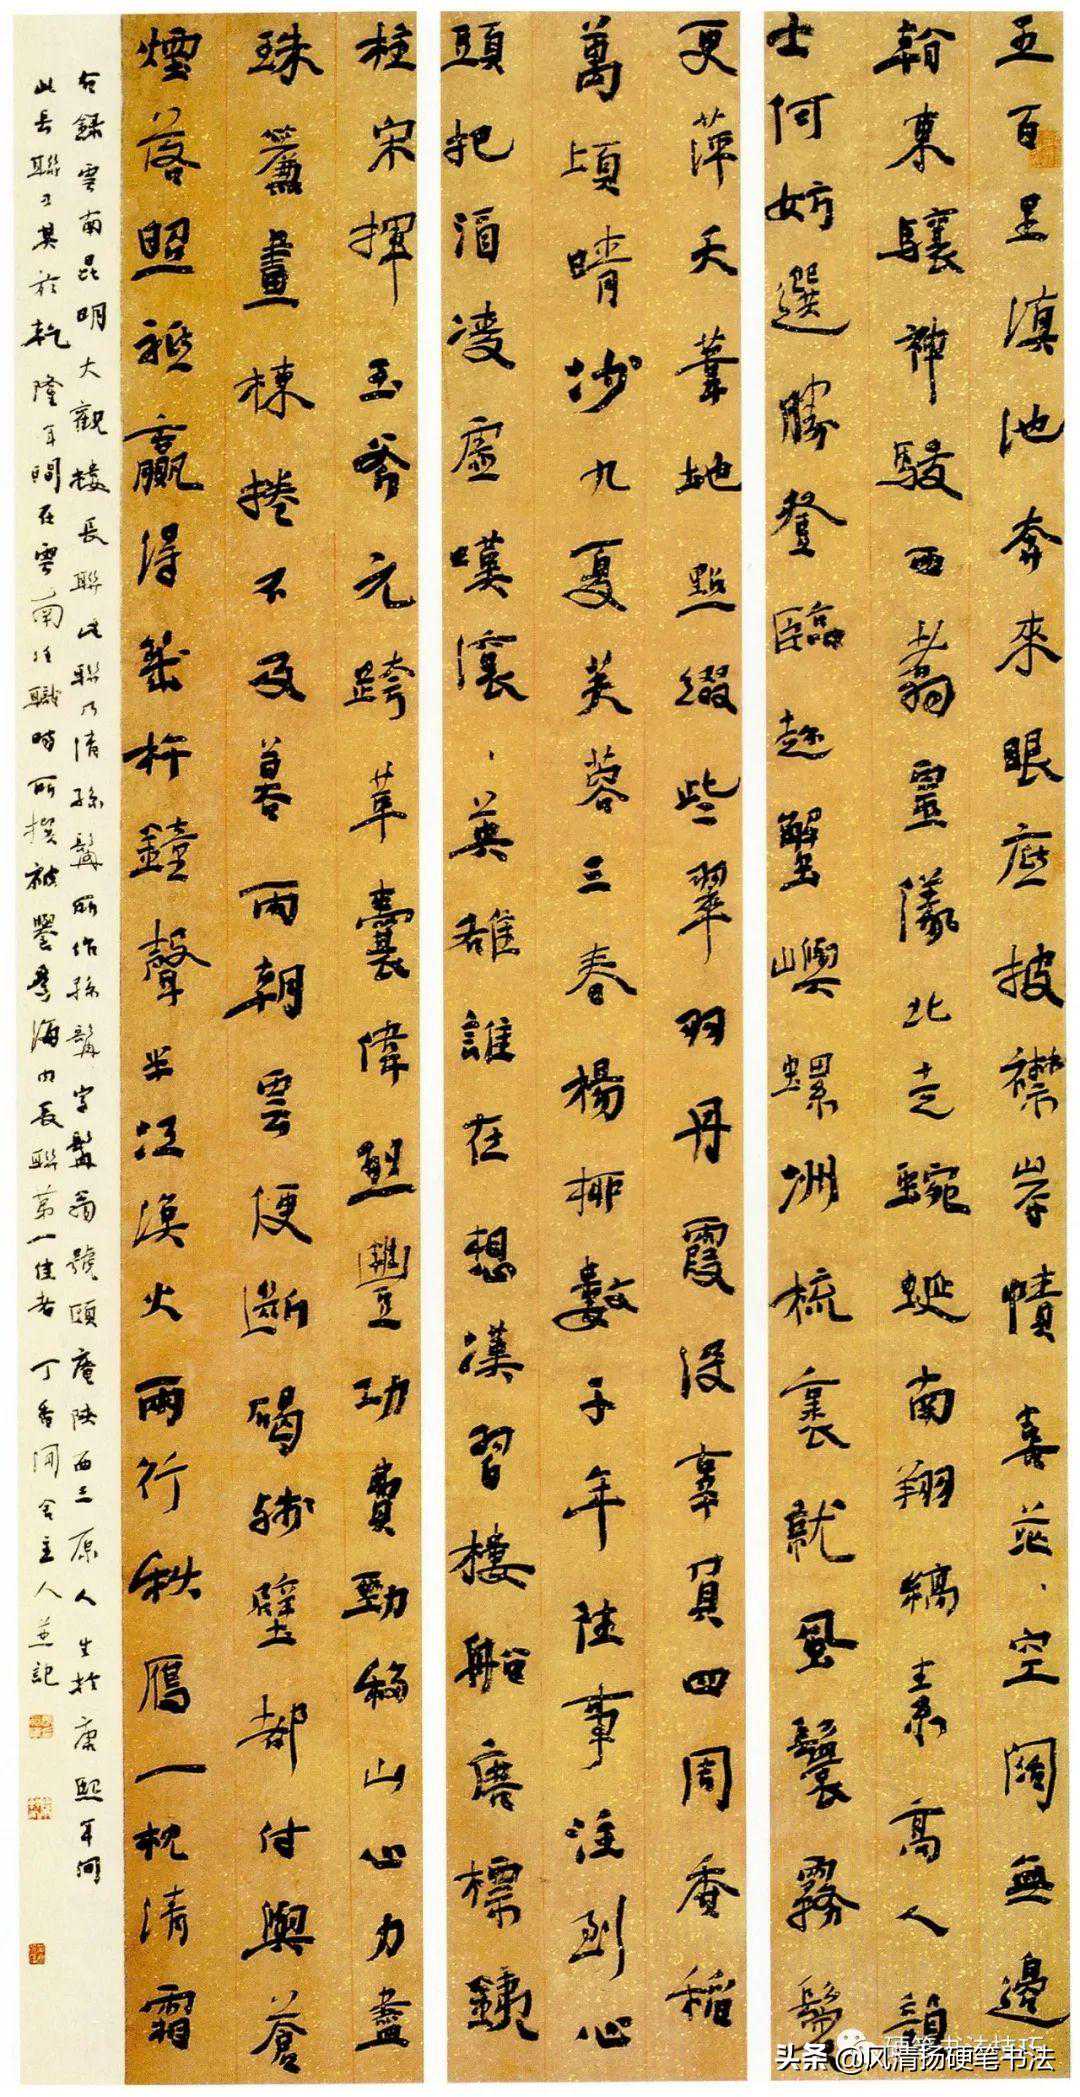 五百里滇池奔來眼底披襟岸幘喜茫、空闊無邊
看東驤神駿西翥靈儀北走蜿蜒南翔縞素高人韻
士何妨選勝登臨趁蟹嶼螺洲梳裹就風鬟霧鬢
更萍天葦地點綴些翠羽丹霞沒辜負四周香稻
萬頃晴沙九夏芙蓉三春楊柳數千年往事注到心
頭把酒凌虛嘆滾、英雄誰在想漢習樓船唐標鐵
柱宋揮玉斧元跨革囊偉烈豐功費勁移山心力盡
珠簾畫棟捲不及暮雨朝雲便斷碣殘壁都付與蒼
煙落照祗贏得幾杵鐘聲半江漁火兩行秋雁一枕清霜
右錄雲南昆明大觀樓長聯此聯乃清孫髯所作孫髯字髯翁號頤庵陝西三原人生於康熙年間
此長聯乃其於乾隆年間在雲南任職時所撰被譽為海內長聯第一佳者 丁香閒舍主人並記
硬笔书法技巧
头条@风清扬硬笔书法